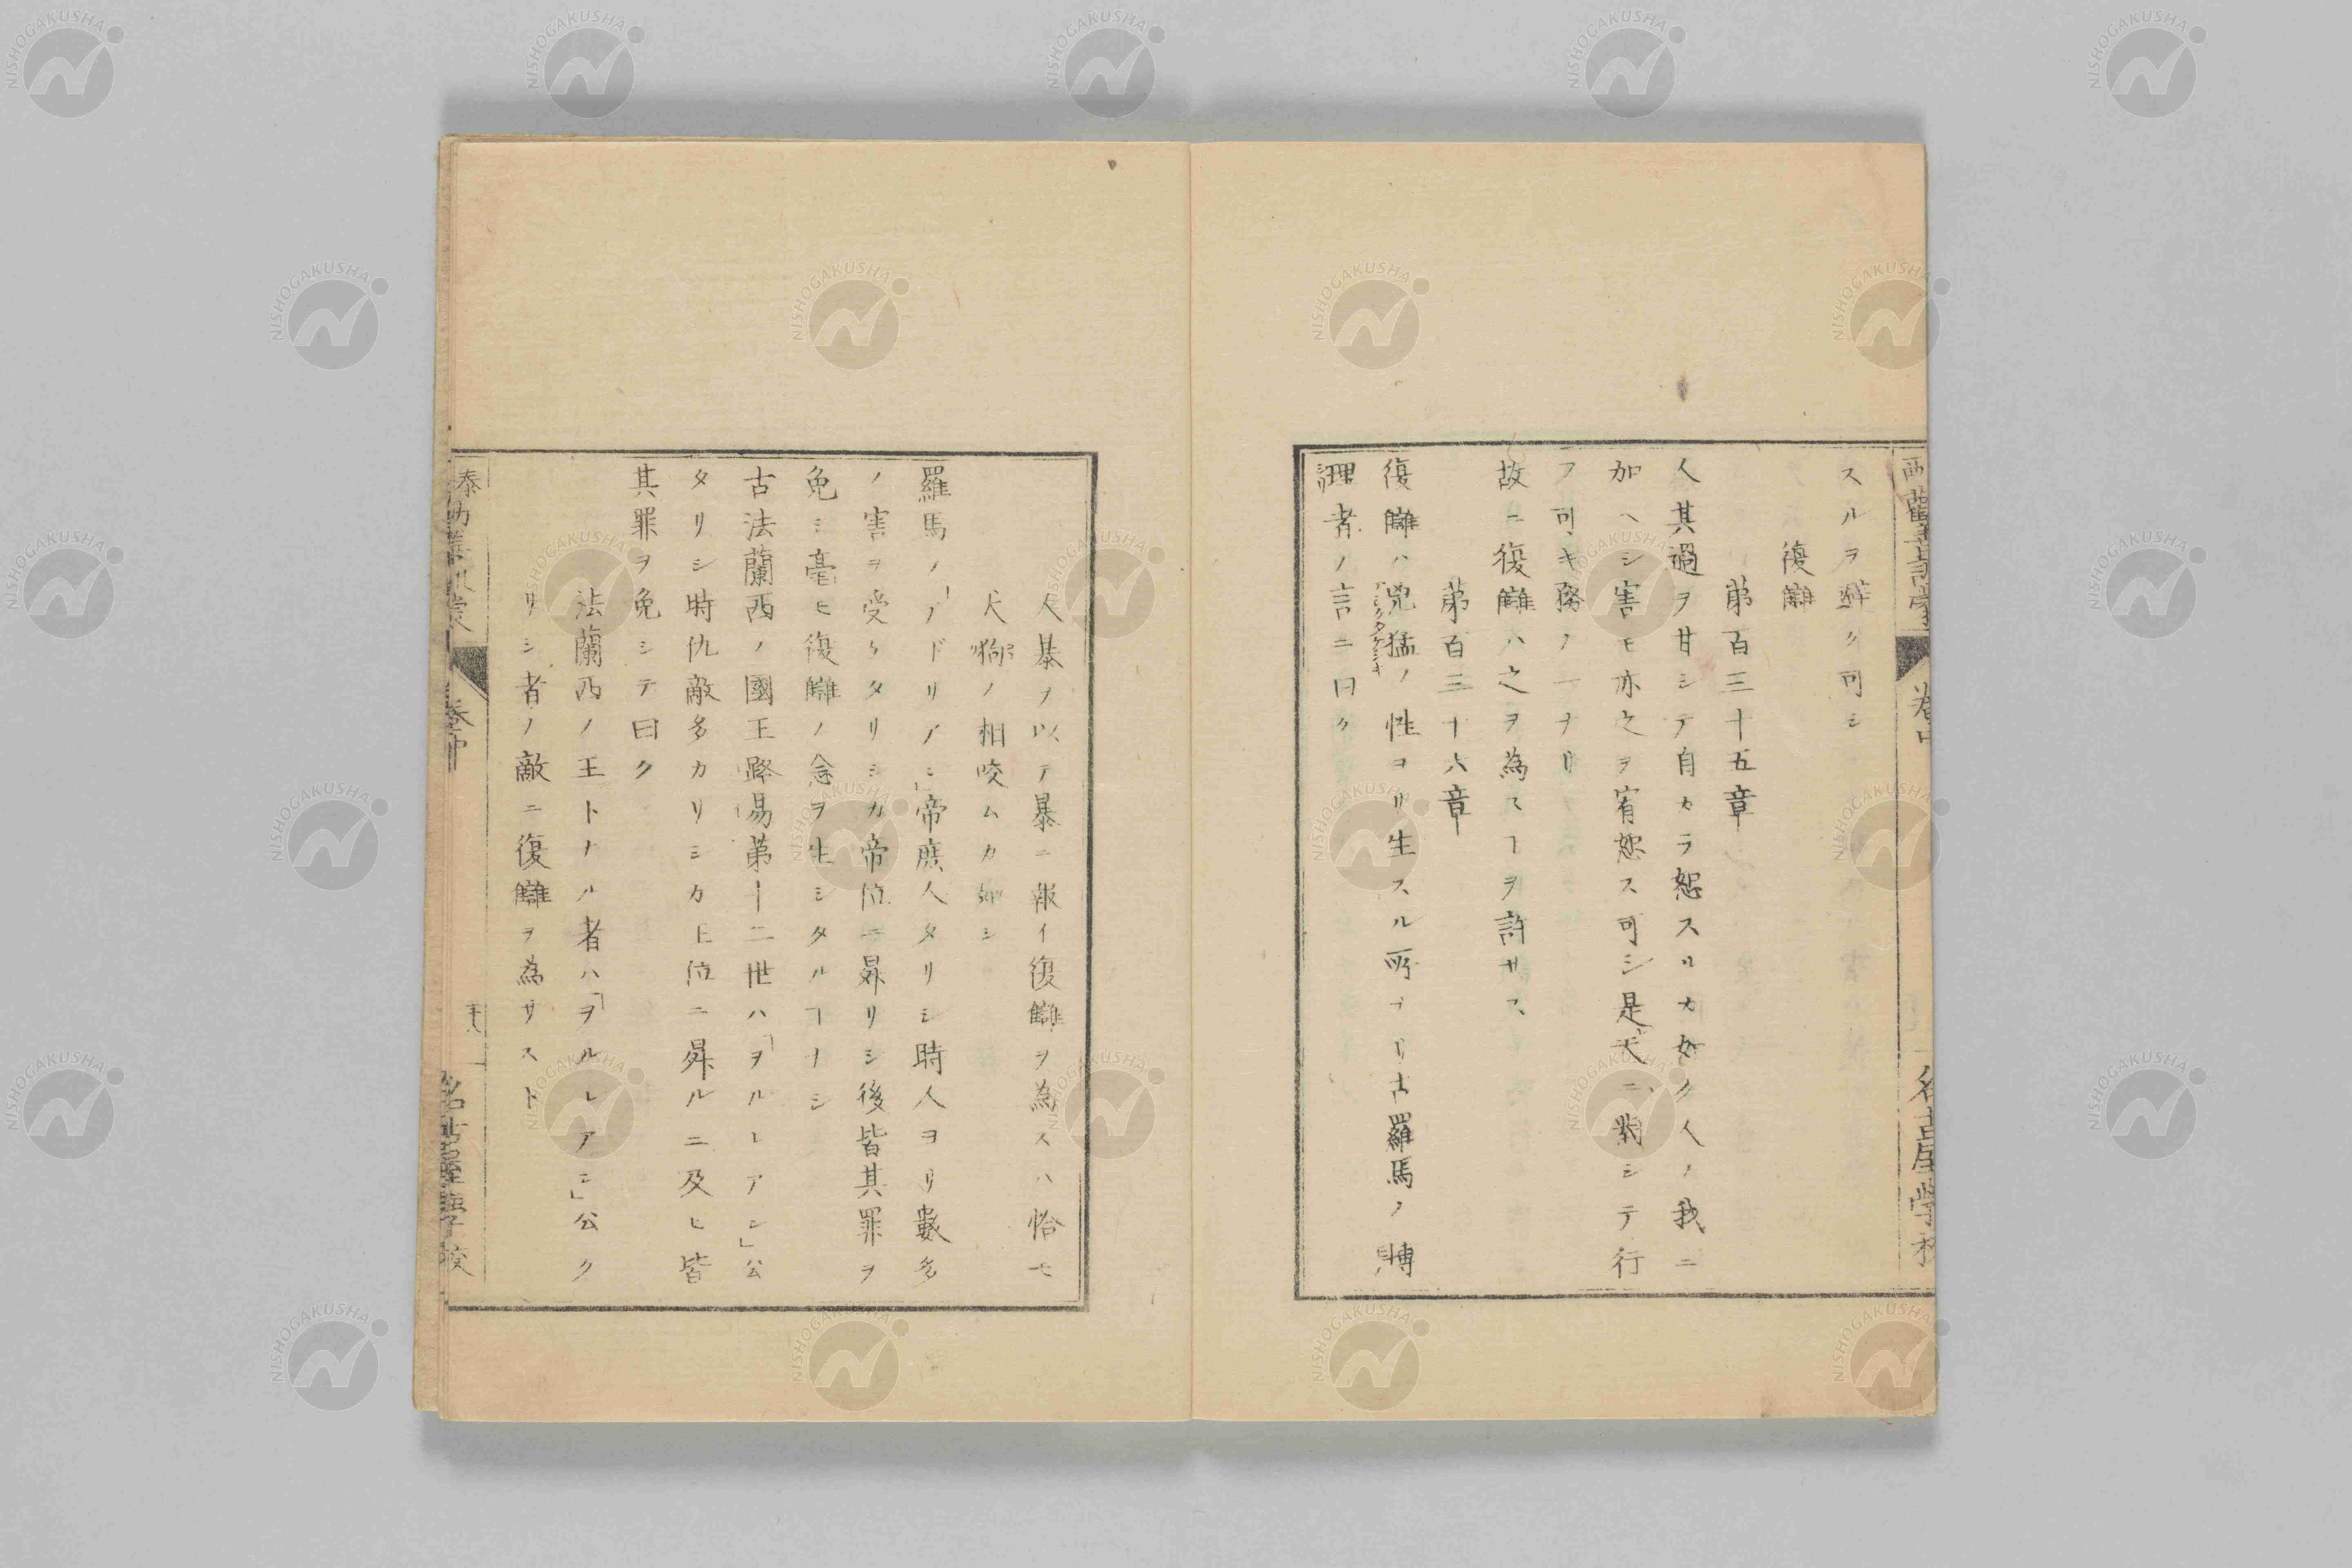 スルヲ避ク可シ
復讎
第百三十五章
人其過ヲ甘シテ自カラ恕スルカ如ク人ノ我ニ
加ヘシ害モ亦之ヲ宥恕ス可シ是天ニ對シテ行
フ可キ務ノ一ナリ
故ニ復讎ハ之ヲ為スヿヲ許サス
第百三十六章
復讎ハ兇猛ノ性ヨリ生スル所ナリ古羅馬ノ博
理者ノ言ニ曰ク
人暴ヲ以テ暴ニ報イ復讎ヲ為スハ恰モ
犬狗ノ相咬ムカ如シ
羅馬ノ「アドリアン」帝庶人タリシ時人ヨリ數多
ノ害ヲ受ケタリシカ帝位ニ昇リシ後皆其罪ヲ
免シ毫モ復讎ノ念ヲ生シタルヿナシ
古法蘭西ノ國王路易第十二世ハ「ヲルレアン」公
タリシ時仇敵多カリシカ王位ニ昇ルニ及ヒ皆
其罪ヲ免シテ曰ク
法蘭西ノ王トナル者ハ「ヲルレアン」公タ
リシ者ノ敵ニ復讎ヲ為サスト
泰西勸善訓蒙
卷中
名古屋學校
NISHOGAKUSHA